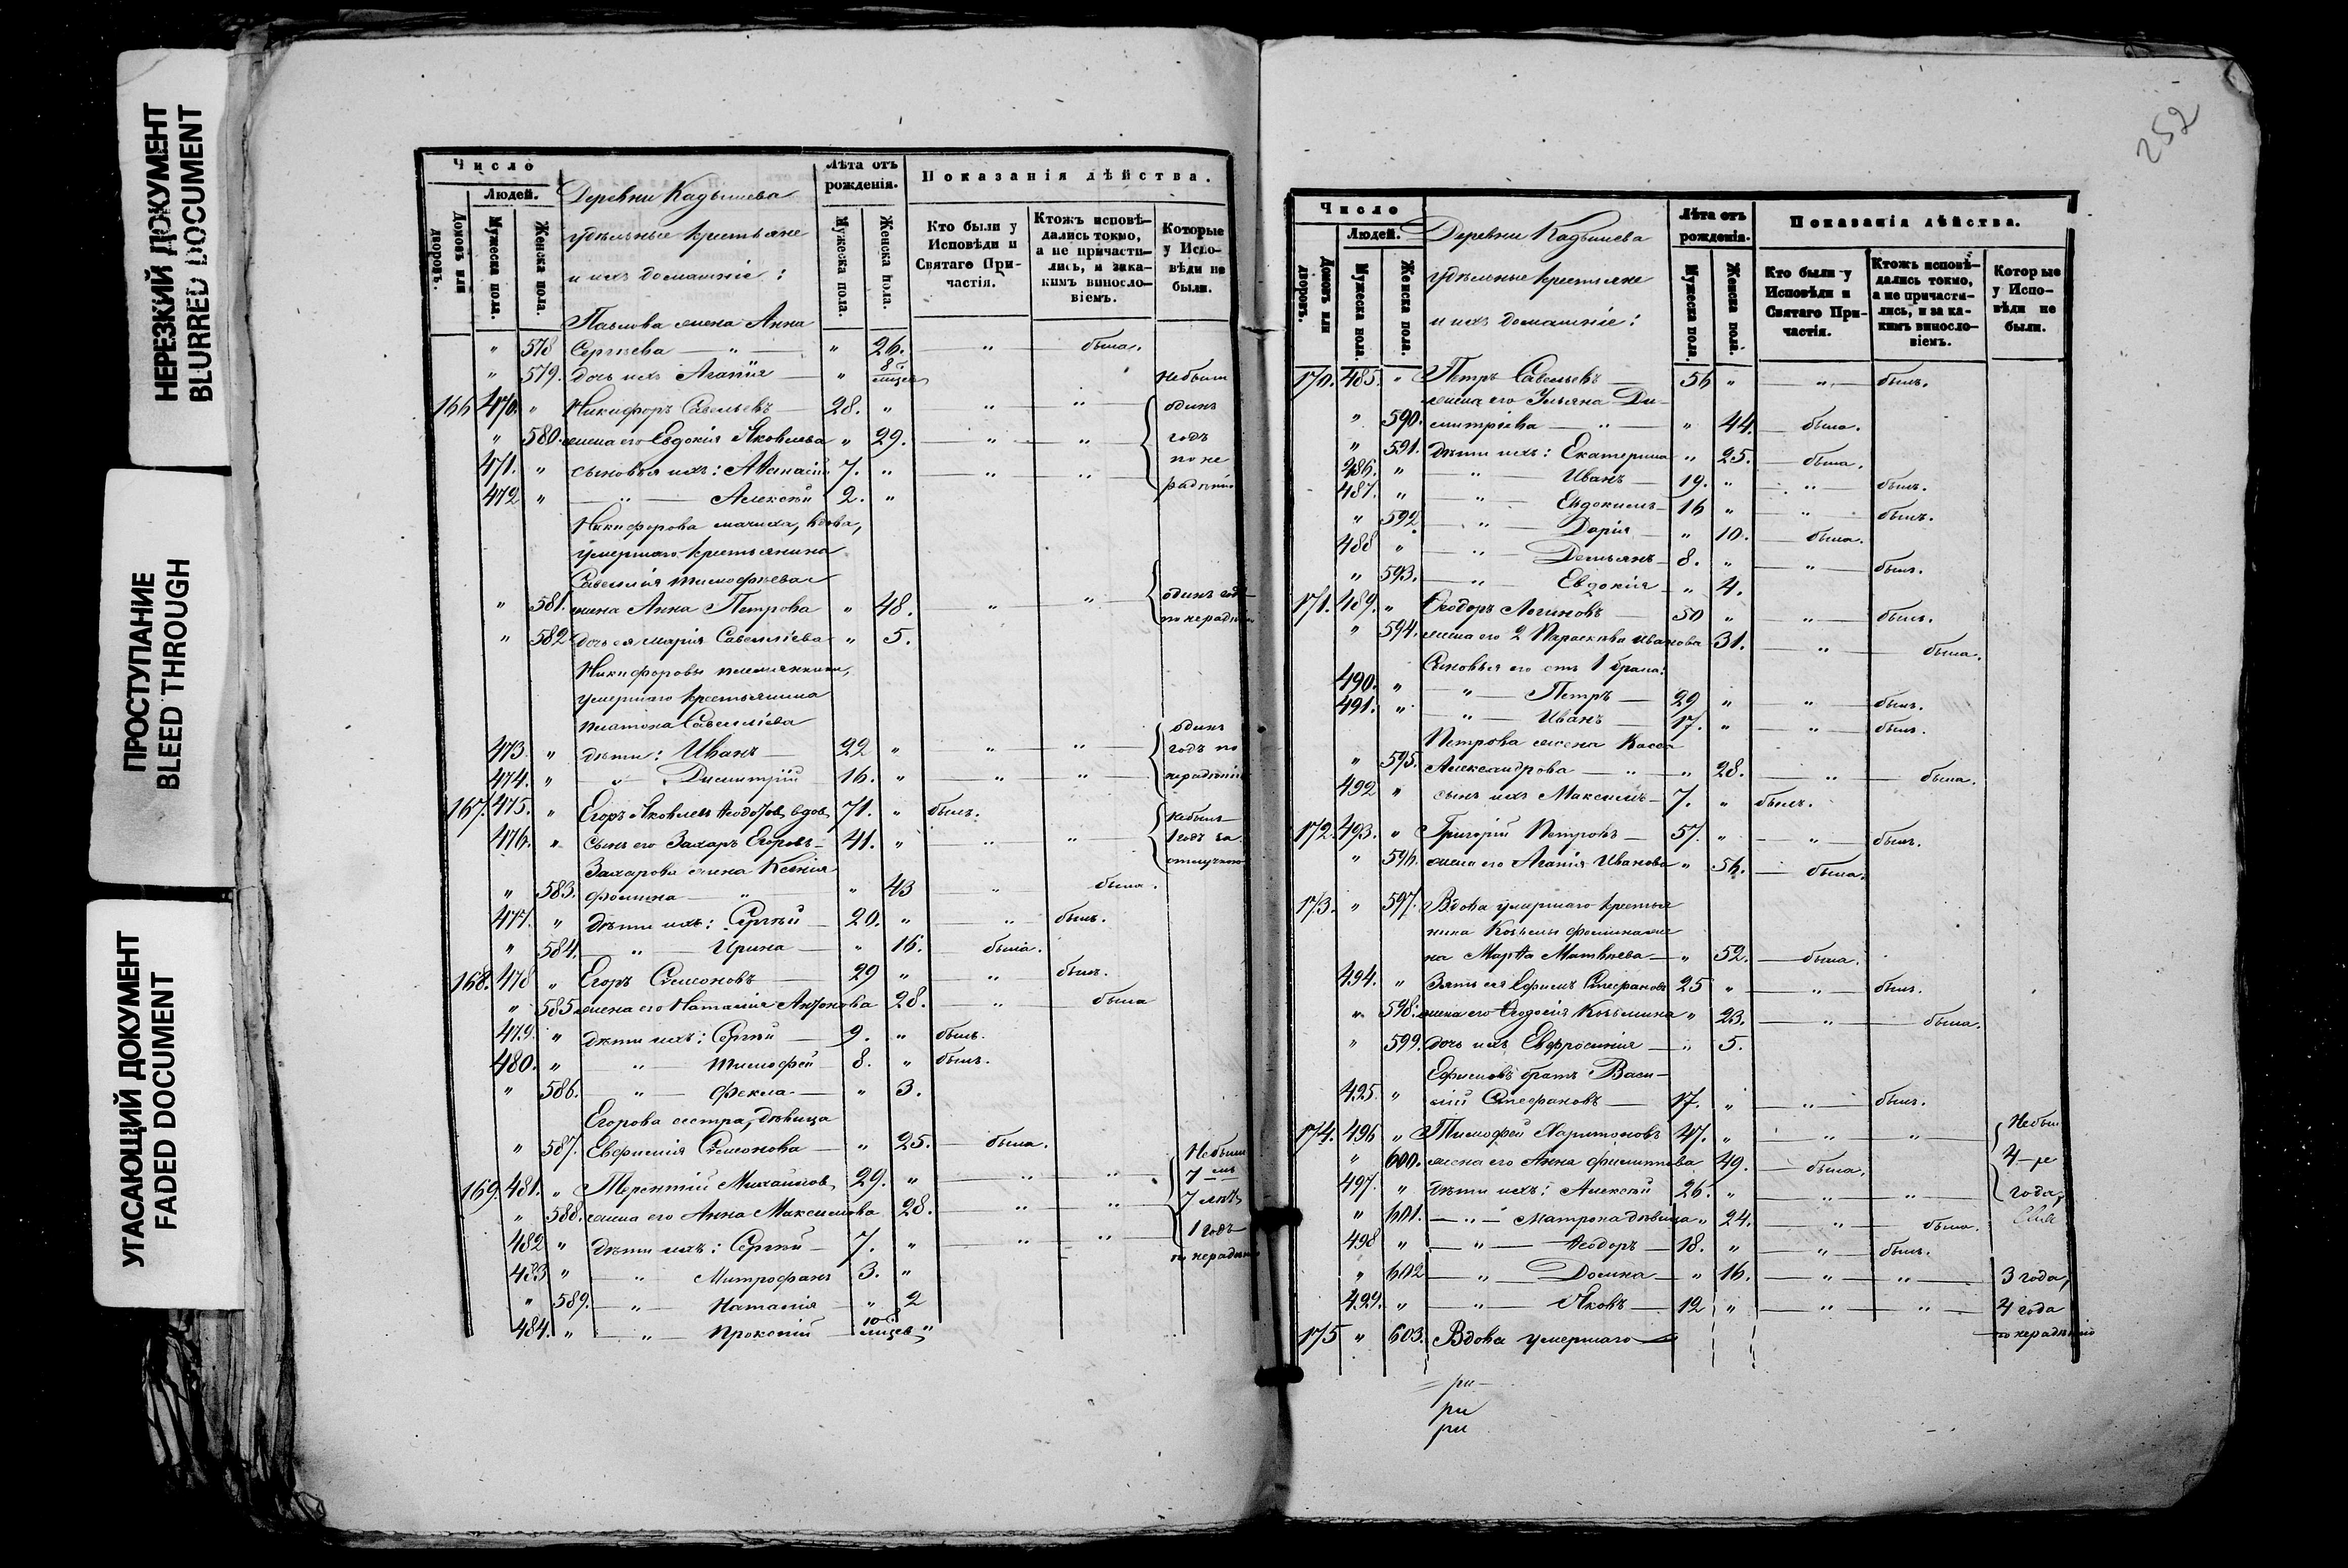 НЕРЕЗКИЙ ДОКУМЕНТ
BLURRED DOCUMENT
ПРОСТУПАНИЕ
BLEED THROUGH
УГАСАЮЩИЙ ДОКУМЕНТ
FADED DOCUMENT
Число
Людей.
Домовъ или дворовъ.
Мужеска пола.
Женска пола.
Деревни Кадышева
удѣльные крестьяне
и ихъ домашніе:
Лѣта отъ рожденія.
Мужеска пола.
Женска пола.
Показанія дѣйства.
Кто были у Исповѣди и Святаго Причастія.
Ктожъ исповѣдались токмо, а не причастились, и за какимъ винословіемъ.
Которые у Исповѣди не были.
Павлова жена Анна
" 578 Сергѣева — " — " 26. " была.
" 579. дочь ихъ Агапія — " 8 мцев
166 470. " Никифоръ Савельевъ — 28. " " " одинъ
" 580. жена его Евдокія Яковлева " 29. " " годъ
471. " сыновья ихъ: Аѳанасій 7. " " " по не
472 " — " — Алексѣй 2. " радѣнію
Никифорова мачиха, вдова,
умершаго крестьянина
Савелія Тимофѣева
" 581. жена Анна Петрова " 48. " " одинъ годъ
по нерадѣнію
" 582 дочь ея Марія Савеліева " 5.
Никифоровы племянники,
умершаго крестьянина
Платона Савеліева
одинъ
473. " дѣти: Иванъ — 22 " " " годъ по
474. " " Димитрій 16. " " " нерадѣнію
167. 475. " Егоръ Яковлевъ вдов. 71. " былъ.
476. " Сынъ его Захаръ Егоровъ — 41. " " " 1 годъ за
отлучкою
Захарова жена Ксенія
" 583. Фомина — " " 43 " была.
477. " Дѣти ихъ: Сергѣй — 20. " " былъ.
" 584. — " — Ирина — " 16. была.
168. 478 " Егоръ Семеновъ — 29 " " былъ.
" 585. жена его Наталія Антонова 28. " была
479. " дѣти ихъ: Сергѣй — 9. " былъ.
480. " " Тимофей — 8. " былъ.
" 586. " Фекла — " 3.
Егорова сестра, дѣвица
" 587. Евфимія Семенова — " 25. была.
169 481. " Терентій Михайловъ 29. " " "
" 588. жена его Анна Максимова 28. " " 7 лѣтъ
482 " Дѣти ихъ: Сергѣй — 7. " " " 1 годъ
по нерадѣнію
483 " " Митрофанъ 3. "
" 589. — " — Наталія — " 2
484. " — " — Прокопій 10 мцев "
252
Число
Людей.
Домовъ или дворовъ.
Мужеска пола.
Женска пола.
Деревни Кадышева
удѣльные крестьяне
и ихъ домашніе:
Лѣта отъ рожденія.
Мужеска пола.
Женска пола.
Показанія дѣйства.
Кто были у Исповѣди и Святаго Причастія.
Ктожъ исповѣдались токмо, а не причастились, и за какимъ винословіемъ.
Которые у Исповѣди не были.
170. 485. " Петръ Савельевъ — 56 " " былъ.
жена его Ульяна Ди-
" 590. митріева — " — " 44. — была.
" 591. дѣти ихъ: Екатерина " 25. — была.
486. " " Иванъ 19. " " былъ.
487. " " Евдокимъ — 16 " " былъ.
" 592. " Дарія — " 10. была.
488 " " Демьянъ 8. " " былъ.
" 593. " Евдокія — " 4.
171. 489. " Ѳеодоръ Логиновъ 50 " " былъ.
" 594. жена его 2 Параскева Иванова 31. " была.
Сыновья его отъ 1 брака:
490. " — " — Петръ — 29 " " былъ.
491. " — " — Иванъ — 17. " " былъ.
Петрова жена Васса
" 595. Александрова — " — " 28. " была.
492 " сынъ ихъ Максимъ — 7. " былъ.
172. 493. " Григорій Петровъ — 57. " " былъ.
" 596. жена его Агапія Иванова " 56. — была.
173. " 597. Вдова умершаго крестья
нина Козьмы Фомина же
на Марѳа Матвѣева — " 52. — была.
494. " Зять ея Ефимъ Стефановъ 25 " " былъ.
" 598. жена его Ѳеодосія Козьмина " 23. " была.
" 599. дочь ихъ Евфросинія — " 5.
Ефимовъ братъ Васи-
495. " лій Стефановъ — 17. " " былъ.
174. 496 " Тимофей Харитоновъ 47. " " " Небыл
" 600. жена его Анна Филиппова 49. — была. 4-ре
497. " Дѣти ихъ: Алексѣй 26. " " " года,
" 601. — " — Матрона дѣвица " 24. " была.
498 " — " — Ѳеодоръ — 18. " " былъ.
" 602 — " — Домна — " 16. — " — " 3 года,
499. " — " — Яковъ — 12 " " " 4 года
по нерадѣнію
175 " 603. Вдова умершаго
ри
ри
ри